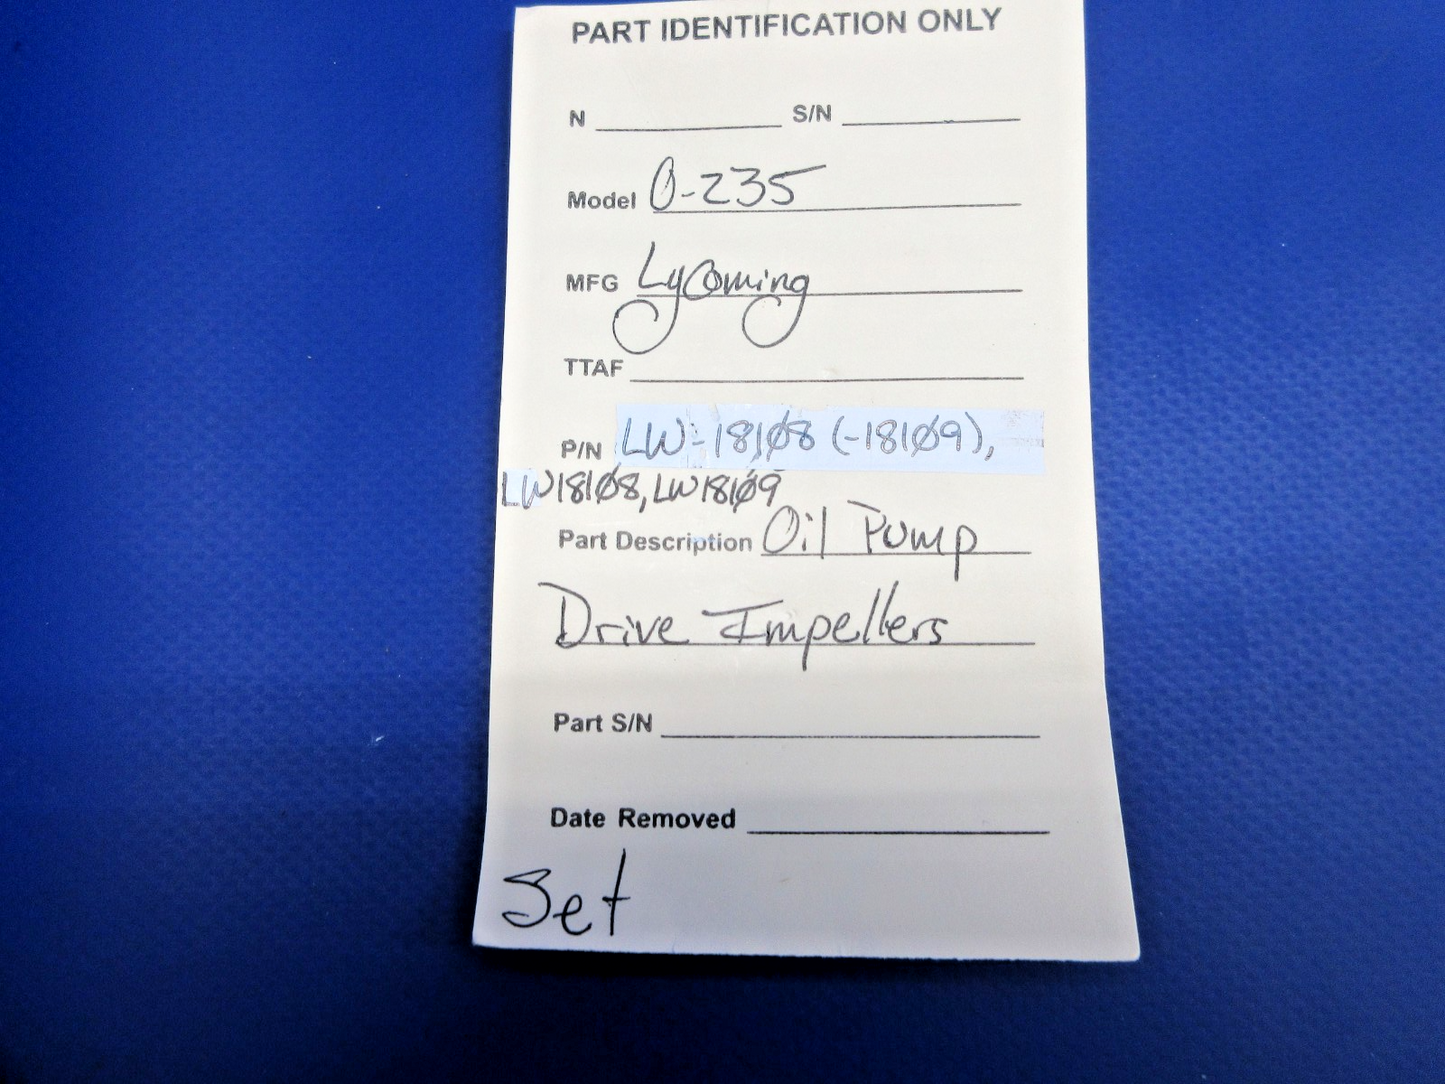 PART IDENTIFICATION ONLY
N S/N
Model O-235
MFG Lycoming
TTAF
P/N LW-18108 (-18109),
LW18108, LW18109
Part Description Oil Pump
Drive Impellers
Part S/N
Date Removed
Set